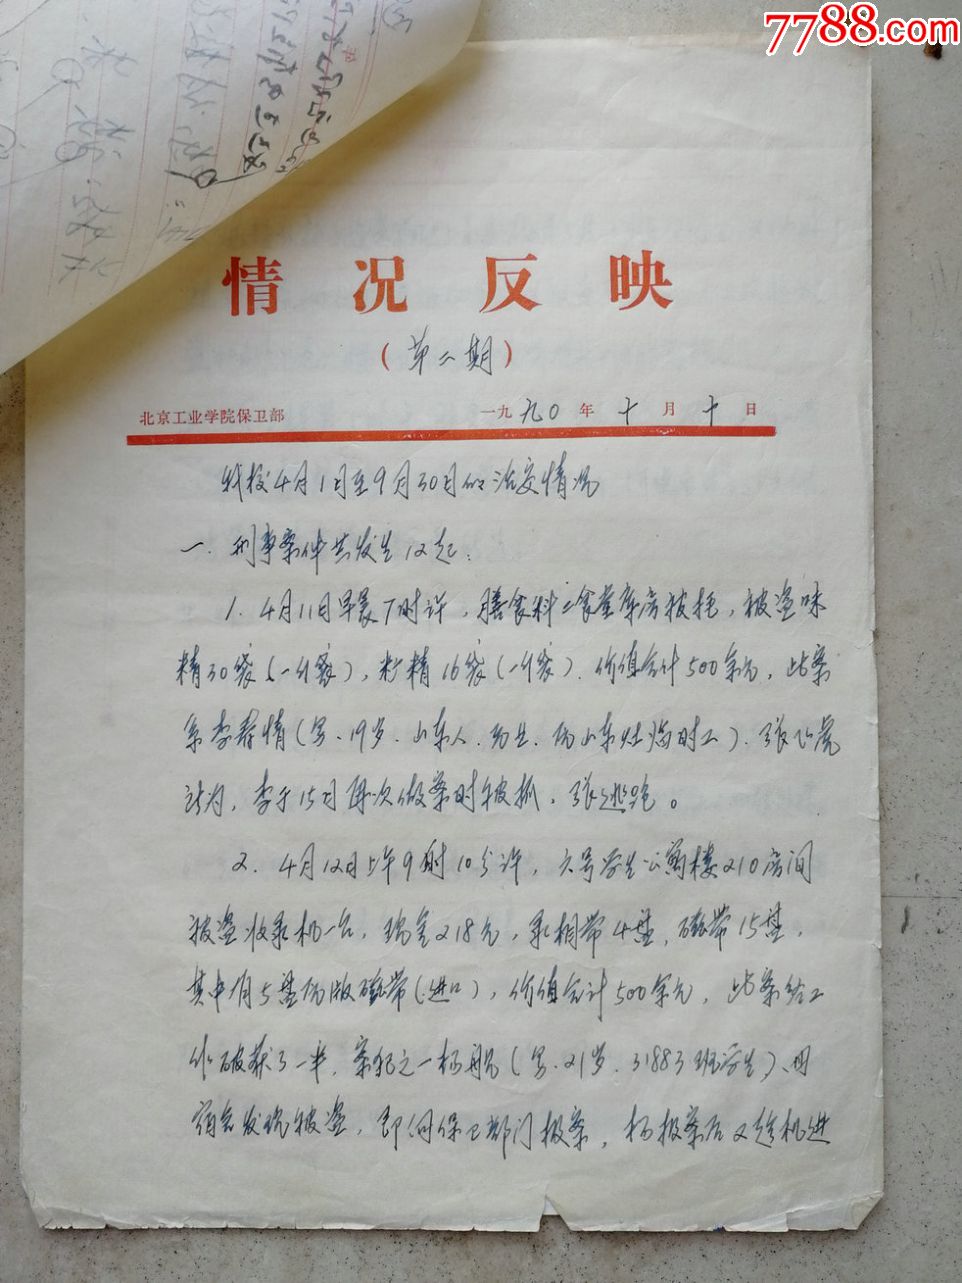 7788.com
情况反映
(第二期)
北京工业学院保卫部 一九九〇年十月十日
我校4月1日至9月30日的治安情况
一.刑事案件共发生12起.
1.4月11日早晨7时许,膳食科二食堂库房被撬,被盗味
精30袋(一斤袋),籽精16袋(一斤袋).价值合计500余元,此案
系李春情(男.19岁.山东人.为临时工).张
为,李于15日再次做案时被抓,张逃跑。
2.4月12日上午9时10分许,六号学生公寓楼210房间
被盗收录机一台,现金218元,录相带4盘,磁带15盘,
其中有5盘原版磁带(进口),价值合计500余元,此案经工
作破获了一半,案犯之一杨(男.21岁.31883班学生)、同
宿舍发现被盗,即向保卫部门报案,杨报案后又趁机进